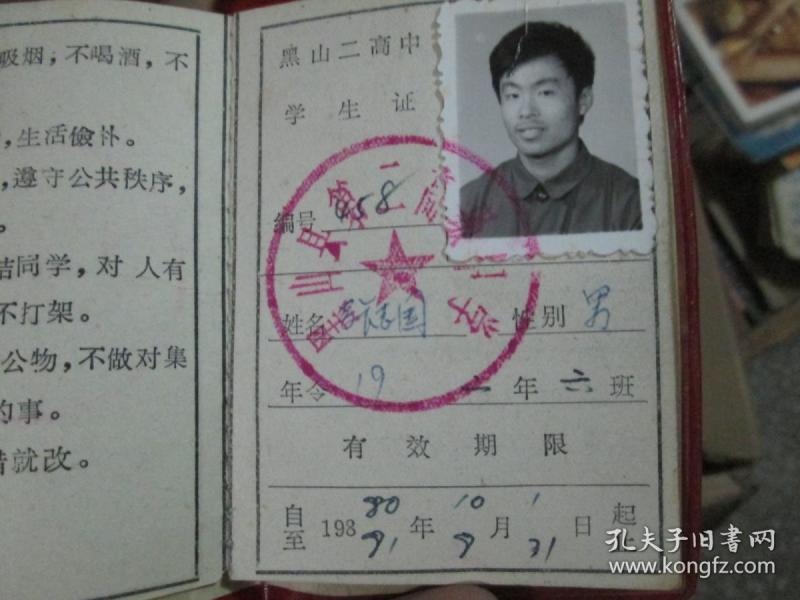 吸烟,不喝酒,不
,生活俭朴。
,遵守公共秩序,
。
结同学,对人有
不打架。
公物,不做对集
的事。
错就改。
黑山二高中
学生证
编号 458
姓名 国 性别 男
年令 19 二年六班
有效期限
自 1980年10月1日起
至 81 8 31 止
孔夫子旧书网
www.kongfz.com